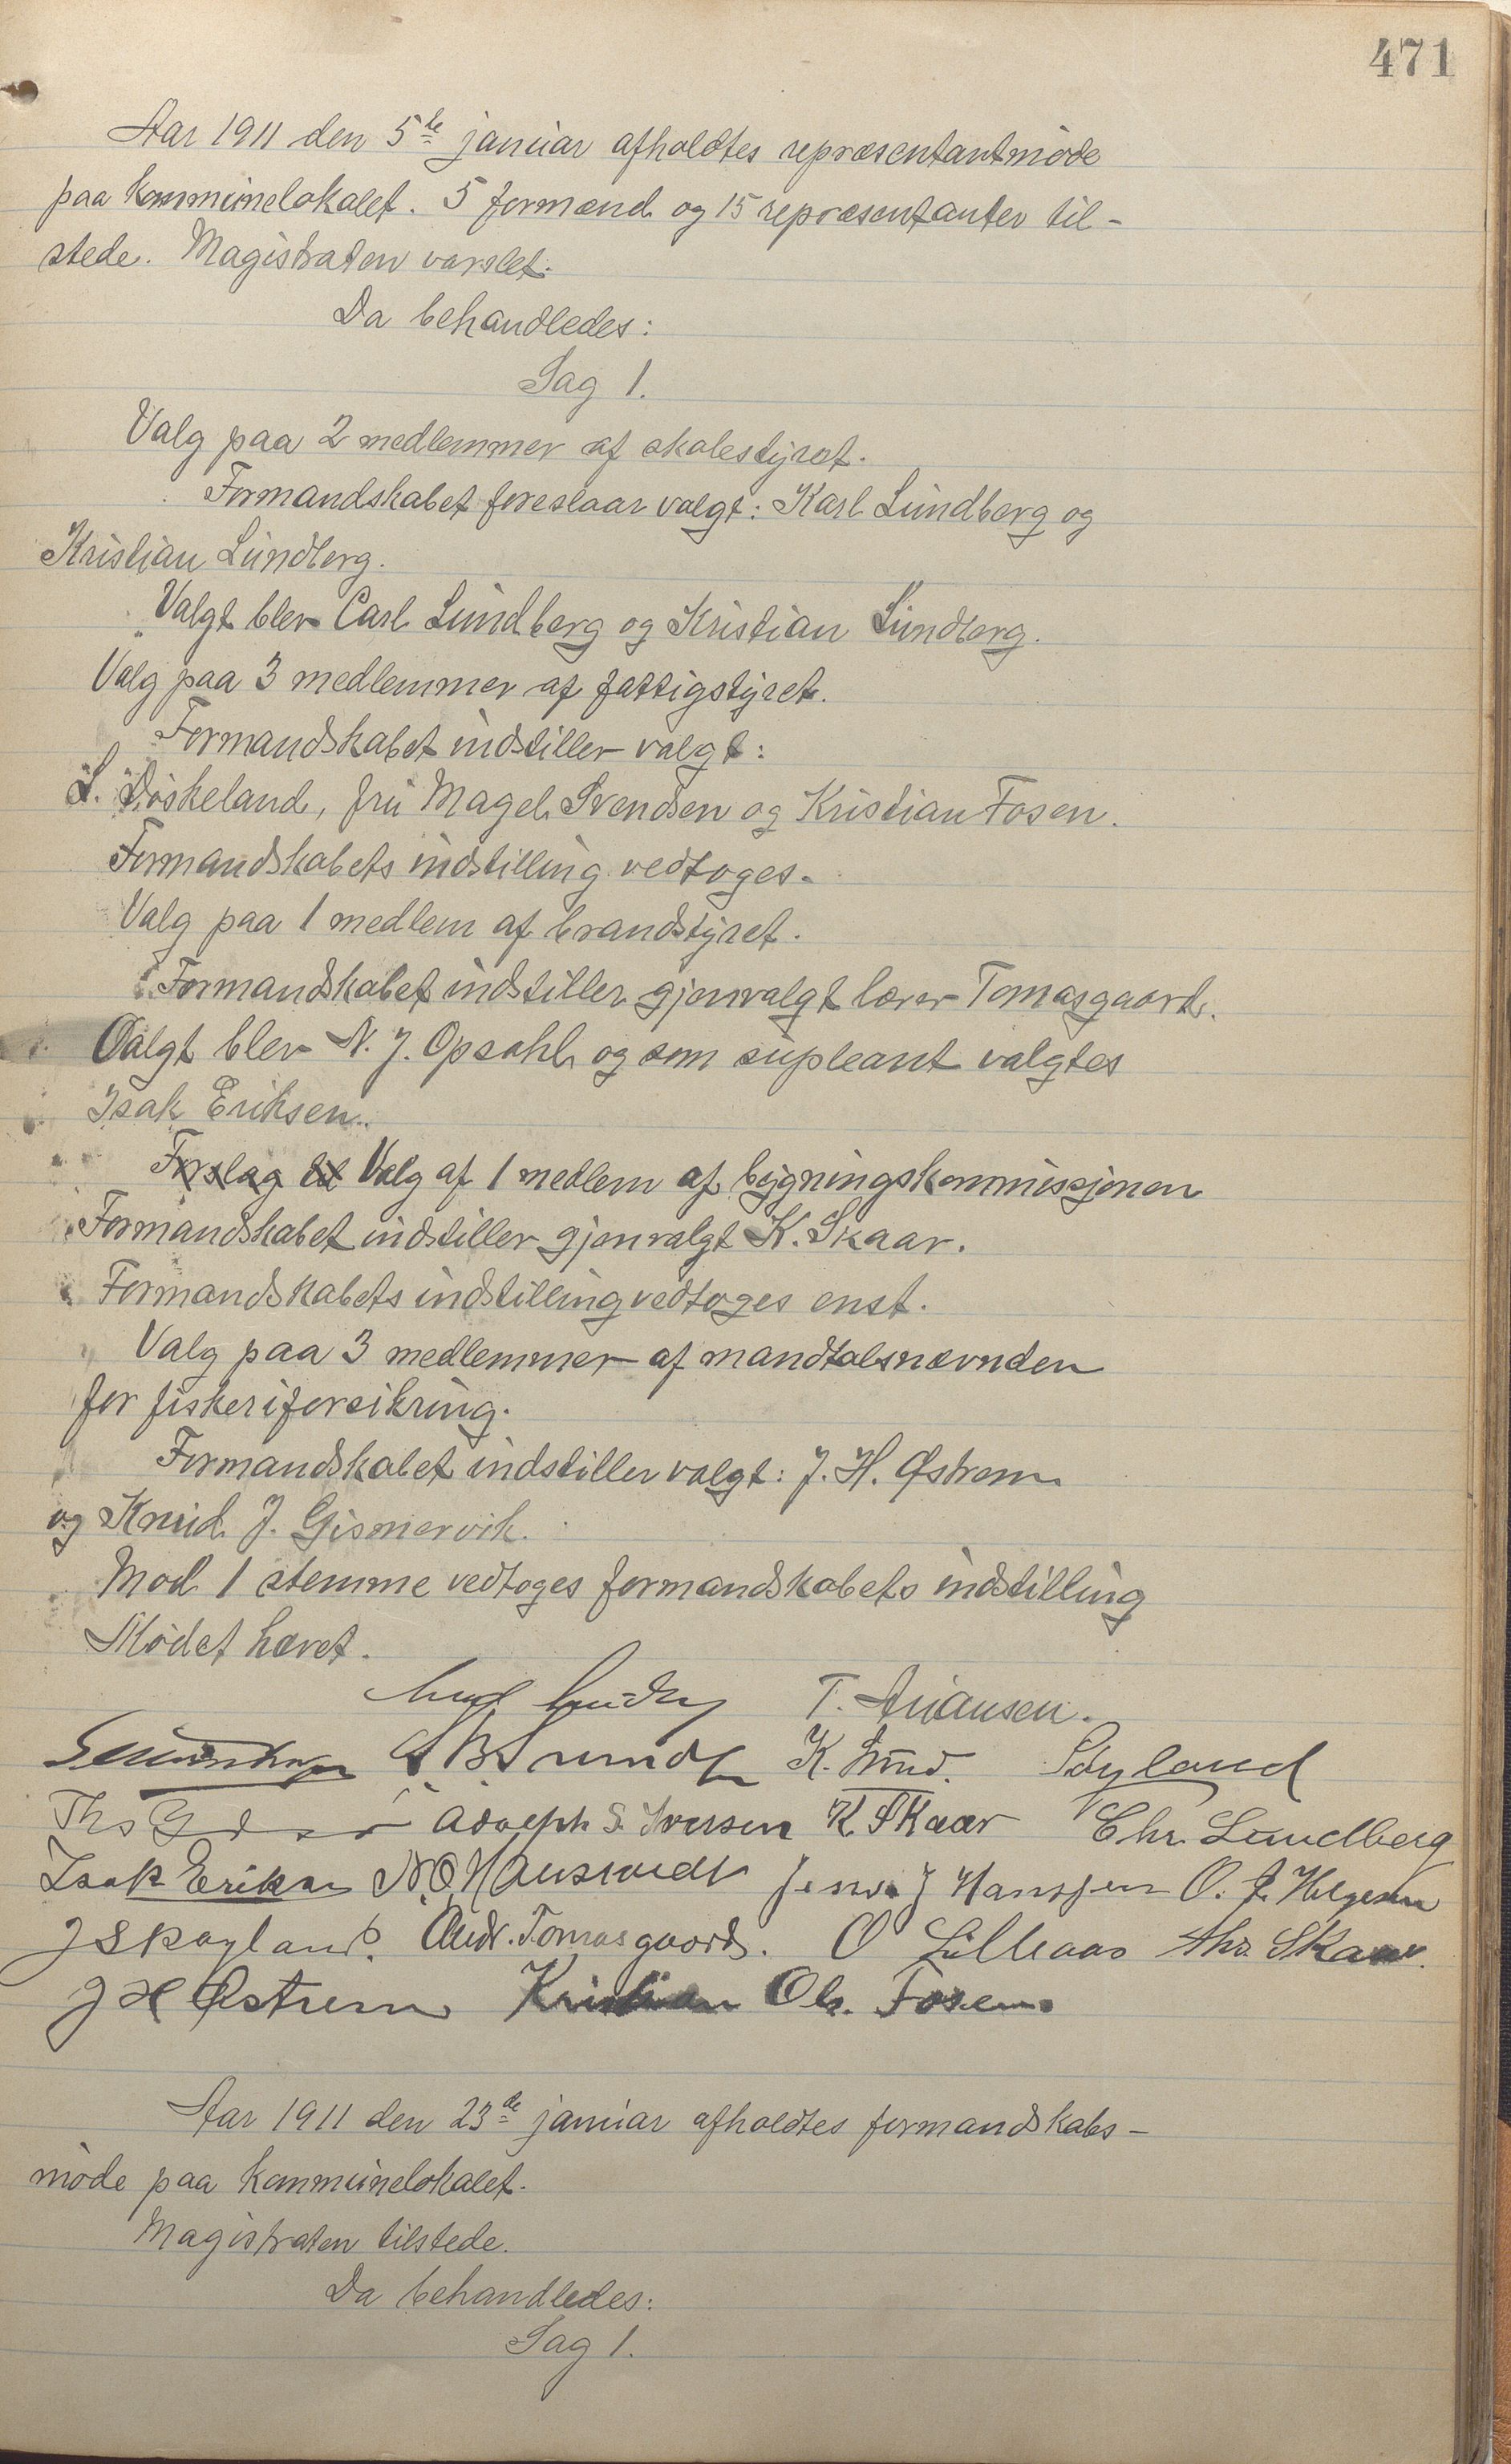 471
Aar 1911 den 5te januar afholdtes repræsentantmøde
paa kommunelokalet. 5 formænd og 15 repræsentanter til-
stede. Magistraten varslet.
Da behandledes:
Sag 1.
Valg paa 2 medlemmer af skolestyret.
Formandskabet foreslaar valgt: Karl Lundberg og
Kristian Lundberg.
Valgt blev Carl Lundberg og Kristian Lundberg.
Valg paa 3 medlemmer af fattigstyret.
Formandskabet indstiller valgt:
L. Døskeland, fru Magel. Svendsen og Kristian Fosen.
Formandskabets indstilling vedtoges.
Valg paa 1 medlem af brandstyret.
Formandskabet indstiller gjenvalgt lærer Tomasgaard.
Valgt blev N. J. Opsahl og som supleant valgtes
Isak Eriksen.
Forslag til Valg af 1 medlem af bygningskommissjonen
Formandskabet indstiller gjenvalgt K. Skaar.
Formandskabets indstilling vedtoges enst.
Valg paa 3 medlemmer af mandtalsnævnden
for fiskeriforsikring.
Formandskabet indstiller valgt: J. H. Østrem
og Knud J. Gismervik.
Mod 1 stemme vedtoges formandskabets indstilling
Mødet hævet.
T.
K. Lund.
Adolph S. Iversen K. Skaar Chr. Lundberg
Isak Eriksen Hanssen O. J. Helgesen
J Skogland. Andr. Tomasgaard. O Lillaas Ths. Skaar.
J H Østrem Kristian Ol. Fosen
Aar 1911 den 23de januar afholdtes formandskabs-
møde paa kommunelokalet.
Magistraten tilstede.
Da behandledes:
Sag 1.